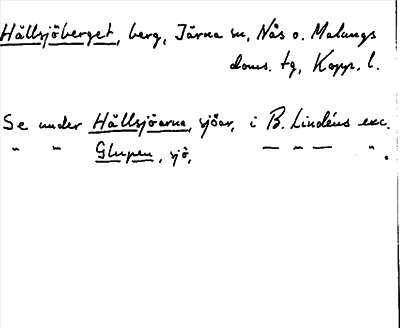 Hällsjöberget, berg, Järna sn, Nås o. Malungs
doms. tg, Kopp. l.
Se under Hällsjöarna, sjöar, i B. Lindéns exc.
" " Glupen, sjö, — " — " .